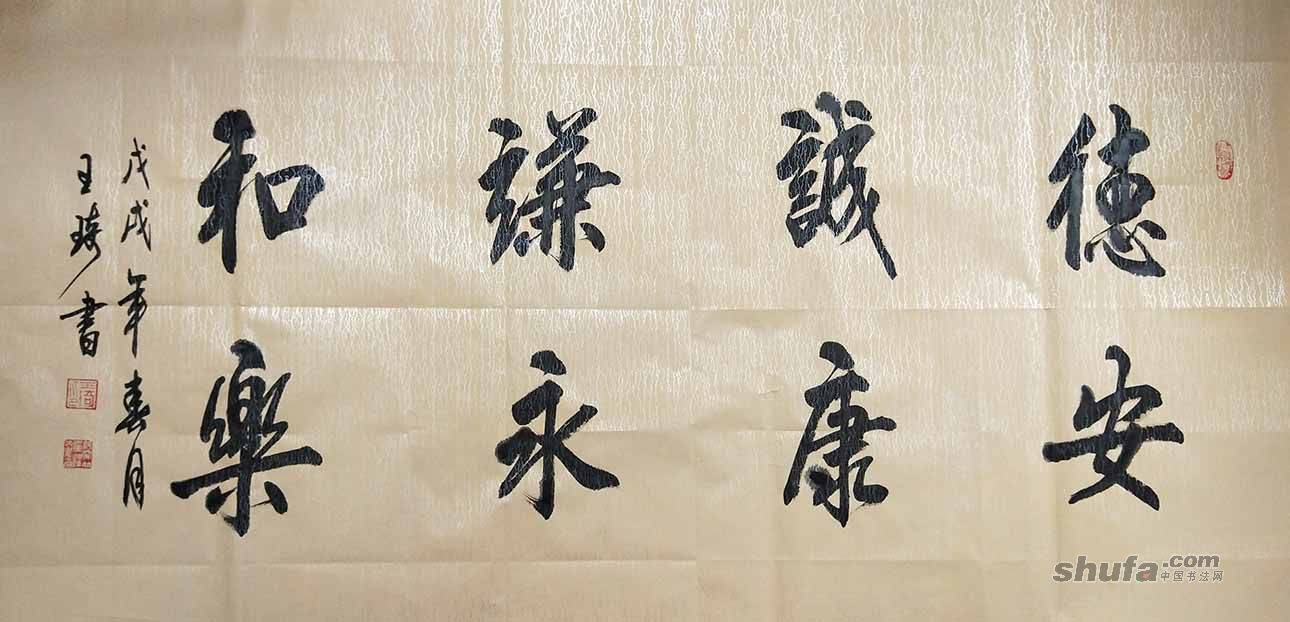 德誠謙和
安康永樂
戊戌年春月
王琦書
shufa.com
中国书法网